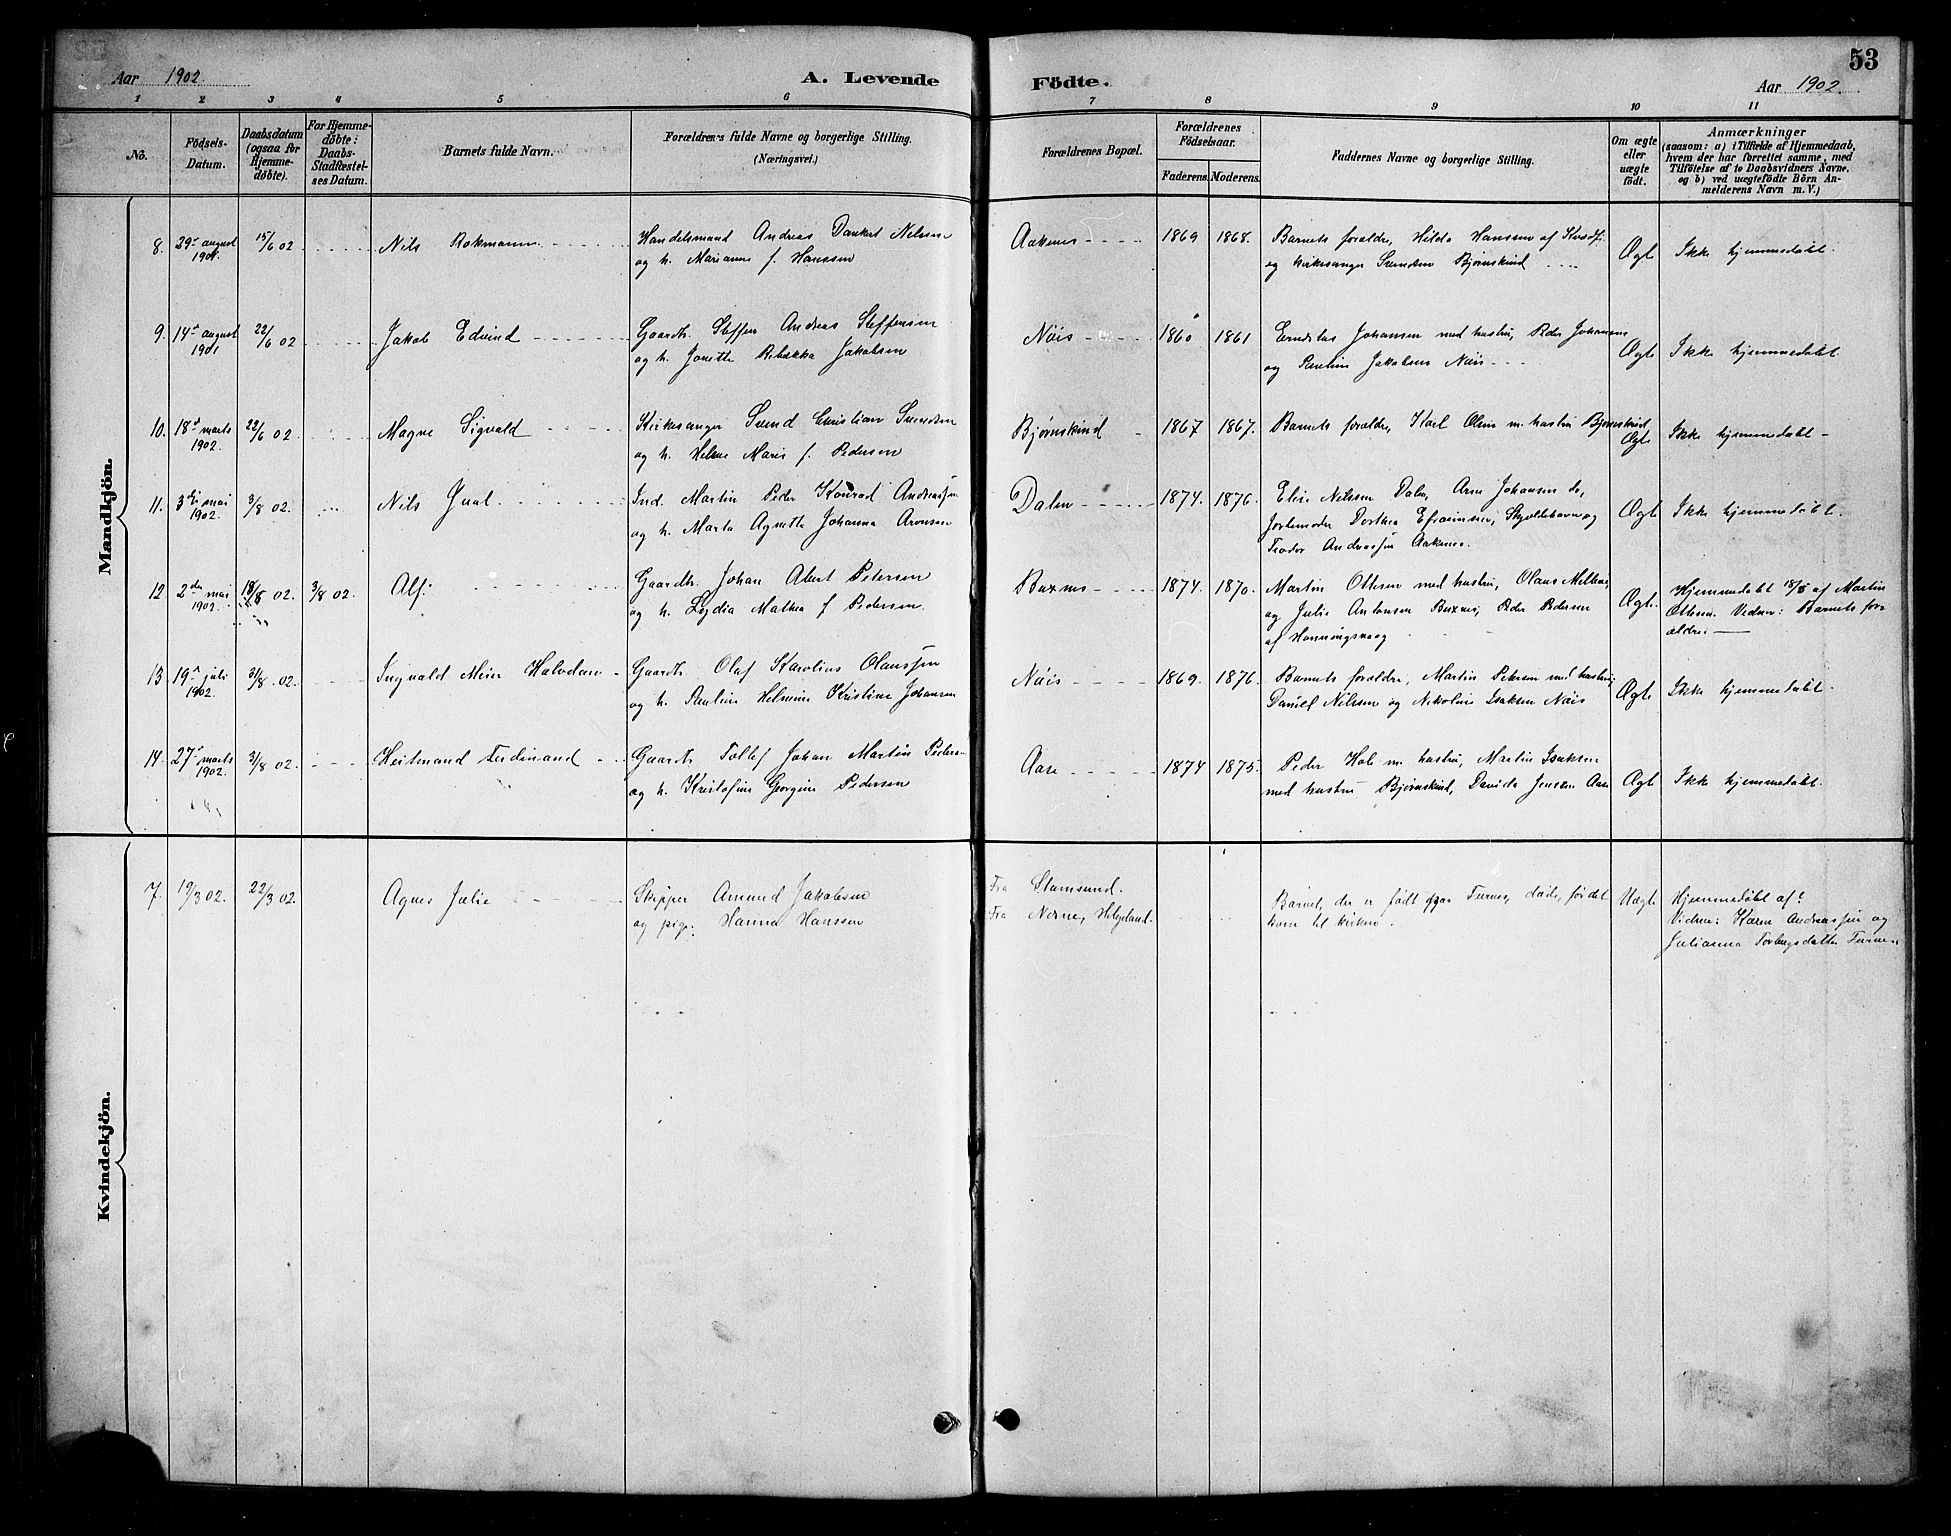 53
Aar 1902.
A. Levende Födte.
Aar 1902.
1 2 3 4 5 6 7 8 9 10 11
No.
Födsels-Datum.
Daabsdatum (ogsaa for Hjemme-døbte).
For Hjemme-døbte: Daabs-Stadfæstel-ses Datum.
Barnets fulde Navn.
Forældrenes fulde Navne og borgerlige Stilling.
(Næringsvei.)
Forældrenes Bopæl.
Forældrenes Födselsaar.
Faderens. Moderens.
Faddernes Navne og borgerlige Stilling.
Om ægte eller uægte födt.
Anmærkninger
(saasom: a) i Tilfælde af Hjemmedaab, hvem der har forrettet samme, med Tilföielse af to Daabsvidners Navne, og b) ved uægtefödte Börn An-melderens Navn m. V.)
Mandkjön.
8. 29 august 1901. 15/6 02 Nils Rokmann
Handelsmand Andreas Dankert Nilssen
og h. Marianne f. Hanssen
Aaknes 1869 1868.
Barnets forældre, Hilda Hanssen af
og kirkesanger Svendsen Bjørnskind
Ægte Ikke hjemmedøbt.
9. 14 august 1901 22/6 02 Jakob Edvind
Gaardb. Steffen Andreas Steffensen
og h. Jonette Rebekka Jakobsen
Nöis 1860 1861
Johansen med hustru, Peder Johansen
og Pauline Jakobsen Nöis
Ægte Ikke hjemmedøbt.
10. 18 marts 1902. 22/6 02 Magne Sigvald
Kirkesanger Svend Christian Svendsen
og h. Helene Marie f. Pedersen
Bjørnskind 1867 1867.
Barnets forældre, Karl Olsen m. hustru Bjørnskind
Ægte Ikke hjemmedøbt
11. 3die mai 1902. 3/8 02. Nils
Ind. Martin Peder Konrad Andreassen
og h. Marta Agnette Johanna Aronsen
Dalen 1874. 1876.
Elise Nilssen Dalen, Arne Johansen do,
Jordemoder Dorthea Efraimsen, Skjoldehavn og
Teodor Andreassen Aaknes.
Ægte Ikke hjemmedøbt.
12 2den mai 1902. 18/5 02. 3/8 02. Alf.
Gaardb. Johan Albert Petersen
og h. Lydia Mathea f. Pedersen.
Buxnes 1874. 1870.
Martin Ottesen med hustru, Olaus
og Julie Antonsen Buxnes, Peder Pedersen
af Honningsvaag
Ægte. Hjemmedøbt 18/5 af Martin
Ottesen. Vidner: Barnets for-
ældre.
13 19 juli 1902. 31/8 02. Ingvald Meier Halvdan
Gaardb. Olaf Karolius Olaussen
og h. Pauline Helmine Kristine Johansen
Nöis 1869. 1876.
Barnets forældre, Martin Petersen med hustru,
Daniel Nilssen og Nikoline Isaksen Nöis
Ægte Ikke hjemmedøbt.
14. 27 marts 1902. 3/8 02. Heitmand Ferdinand
Gaardb. Tollef Johan Martin Peders.
og h. Kristofine Georgine Pedersen
Aase 1874 1875.
Peder Hol m. hustru, Martin Isaksen
med hustru Bjørnskind, Davida Jensen Aase
Ægte Ikke hjemmedøbt.
Kvindekjön.
7. 19/3 02. 22/3 02. Agnes Julie
Skipper Amund Jakobsen
og pige: Hanna Hanssen
Fra Stamsund.
Fra Nesne, Helgeland.
Barnet, der er født paa Furnes, døde, før det
kom til kirken.
Uægte Hjemmedøbt af?
Vidner: Karen Andreassen og
Julianna Torbergsdatter Furnes.